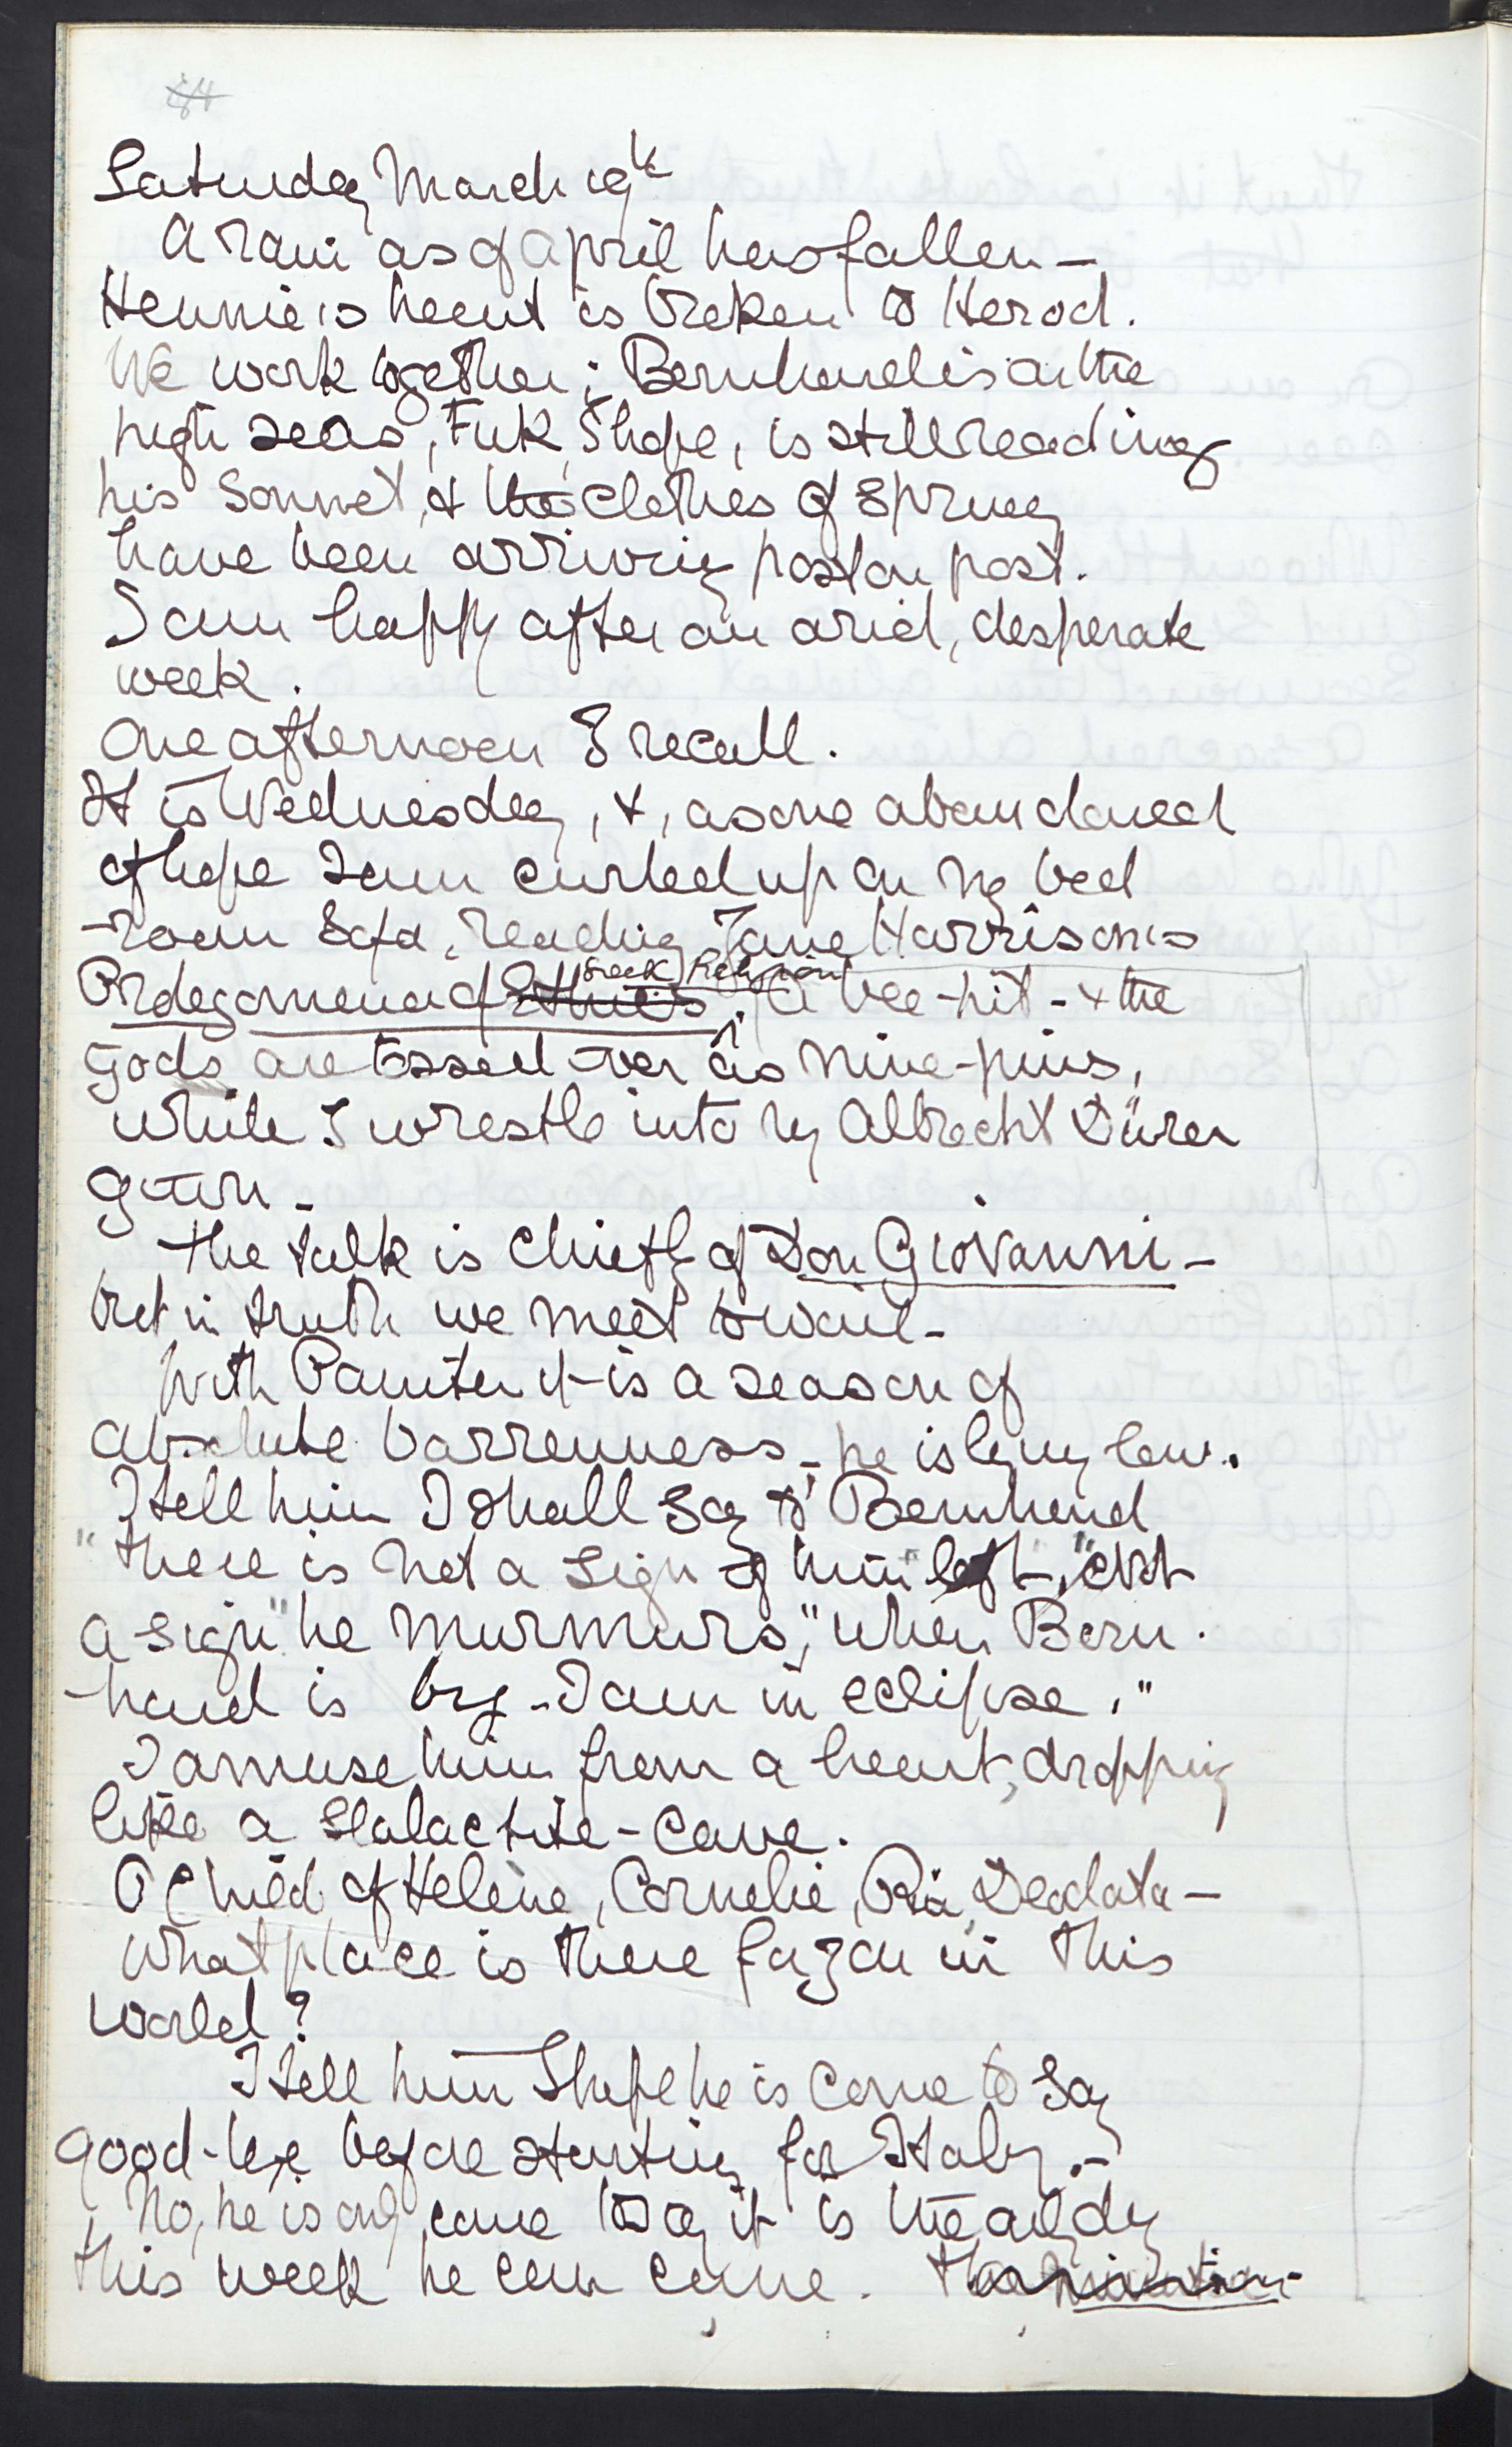 Saturday March 19th
A rain as of April has fallen –
Hennie's heart is broken to Herod.
We work together; Bernhard is on the
high seas, I hope, is still reading
his Sonnet, & the clothes of Spring
have been arriving post on post.
I am happy after an arid, desperate
week.
One afternoon I recall.
It is Wednesday, &, as one abandoned
of hope I am curled up on my bed
-room Sofa, reading Jane Harrison's
Prolegomena of Ethics Greek Religion, a bee-hit – & the
gods are tossed over as nine-pins,
while I wrestle into my Albrecht Dürer
gown –
The talk is chiefly of Don Giovanni –
but in truth we meet to wail –
With Painter it is a season of
absolute barrenness – he is lying low.
I tell him I shall say to Bernhard
"there is not a sign of him left," "Not
a sign" he murmurs, "when Bern-
hard is by – I am in eclipse."
I amuse him from a heart, dropping
like a Stalactite-Cave.
O Child of Helene, Cornelie, Ria, Deodata –
what place is there for you in this
world?
I tell him I hope he is come to say
good-bye before starting for Italy. –
No, he is only come to say it is the only day
this week he can come.